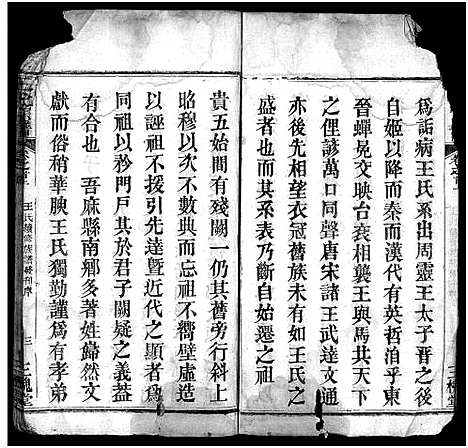 為詬病王氏系出周靈王太子晉之後
自姬以降而秦而漢代有英哲洎乎東
晉蟬冕交映台袞相襲王與馬共天下
之俚諺萬口同聲唐宋諸王武達文通
亦後先相望衣冠舊族未有如王氏之
盛者也而其系表乃斷自始遷之祖
貴五始間有殘闕一仍其舊旁行斜上
昭穆以次不數典而忘祖不嚮壁虛造
以誣祖不扳引先達暨近代之顯者為
同祖以矜門戶其於君子闕疑之義蓋
有合也　吾麻縣南鄉多著姓歸然文
獻而俗稍華腴王氏獨勤謹為有孝弟
王氏續修族譜發刊序
三
三槐堂